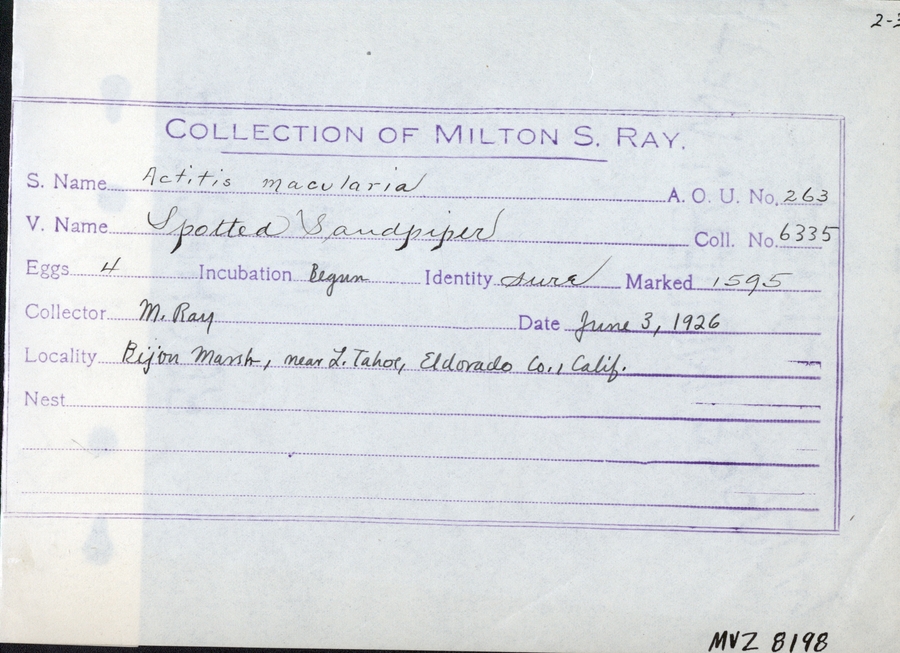 COLLECTION OF MILTON S. RAY.
S. Name Actitis macularia A. O. U. No. 263
V. Name Spotted Sandpiper Coll. No. 6335
Eggs 4 Incubation Begun Identity sure Marked 1595
Collector M. Ray Date June 3, 1926
Locality Bijou Marsh, near L. Tahoe, Eldorado Co., Calif.
Nest
MVZ 8198